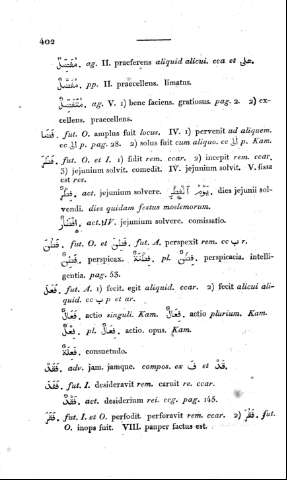 402
مُفَضِّلٌ. ag. II. praeferens aliquid alicui. cca et على.
مُفَضَّلٌ. pp. II. praecellens. limatus.
مُتَفَضِّلٌ. ag. V. 1) bene faciens. gratiosus. pag. 2. 2) ex-
cellens. praecellens.
فَضَا. fut. O. amplus fuit locus. IV. 1) pervenit ad aliquem.
cc إلى p. pag. 28. 2) solus fuit cum aliquo. cc إلى p. Kam.
فَطَرَ. fut. O. et I. 1) fidit rem. ccar. 2) incepit rem. ccar.
3) jejunium solvit. comedit. IV. jejunium solvit. V. fissa
est res.
فِطْرٌ. act. jejunium solvere. يَوْمُ الْفِطْرِ. dies jejunii sol-
vendi. dies quidam festus moslemorum.
إِفْطَارٌ. act. IV. jejunium solvere. comissatio.
فَطَنَ. fut. O. et فَطِنَ. fut. A. perspexit rem. cc ب r.
فَطِنٌ. perspicax. فِطْنَةٌ. pl. فِطَنٌ. perspicacia. intelli-
gentia. pag. 53.
فَعَلَ. fut. A. 1) fecit. egit aliquid. ccar. 2) fecit alicui ali-
quid. cc ب p et ar.
فَعَالٌ. actio singuli. Kam. فِعَالٌ. actio plurium. Kam.
فِعْلٌ. pl. فِعَالٌ. actio. opus. Kam.
فَعْلَةٌ. consuetudo.
فَقَدْ. adv. jam. jamque. compos. ex فَ et قَدْ.
فَقَدَ. fut. I. desideravit rem. caruit re. ccar.
فَقْدٌ. act. desiderium rei. ccg. pag. 145.
فَقَرَ. fut. I. et O. perfodit. perforavit rem. ccar. 2) فَقُرَ. fut.
O. inops fuit. VIII. pauper factus est.